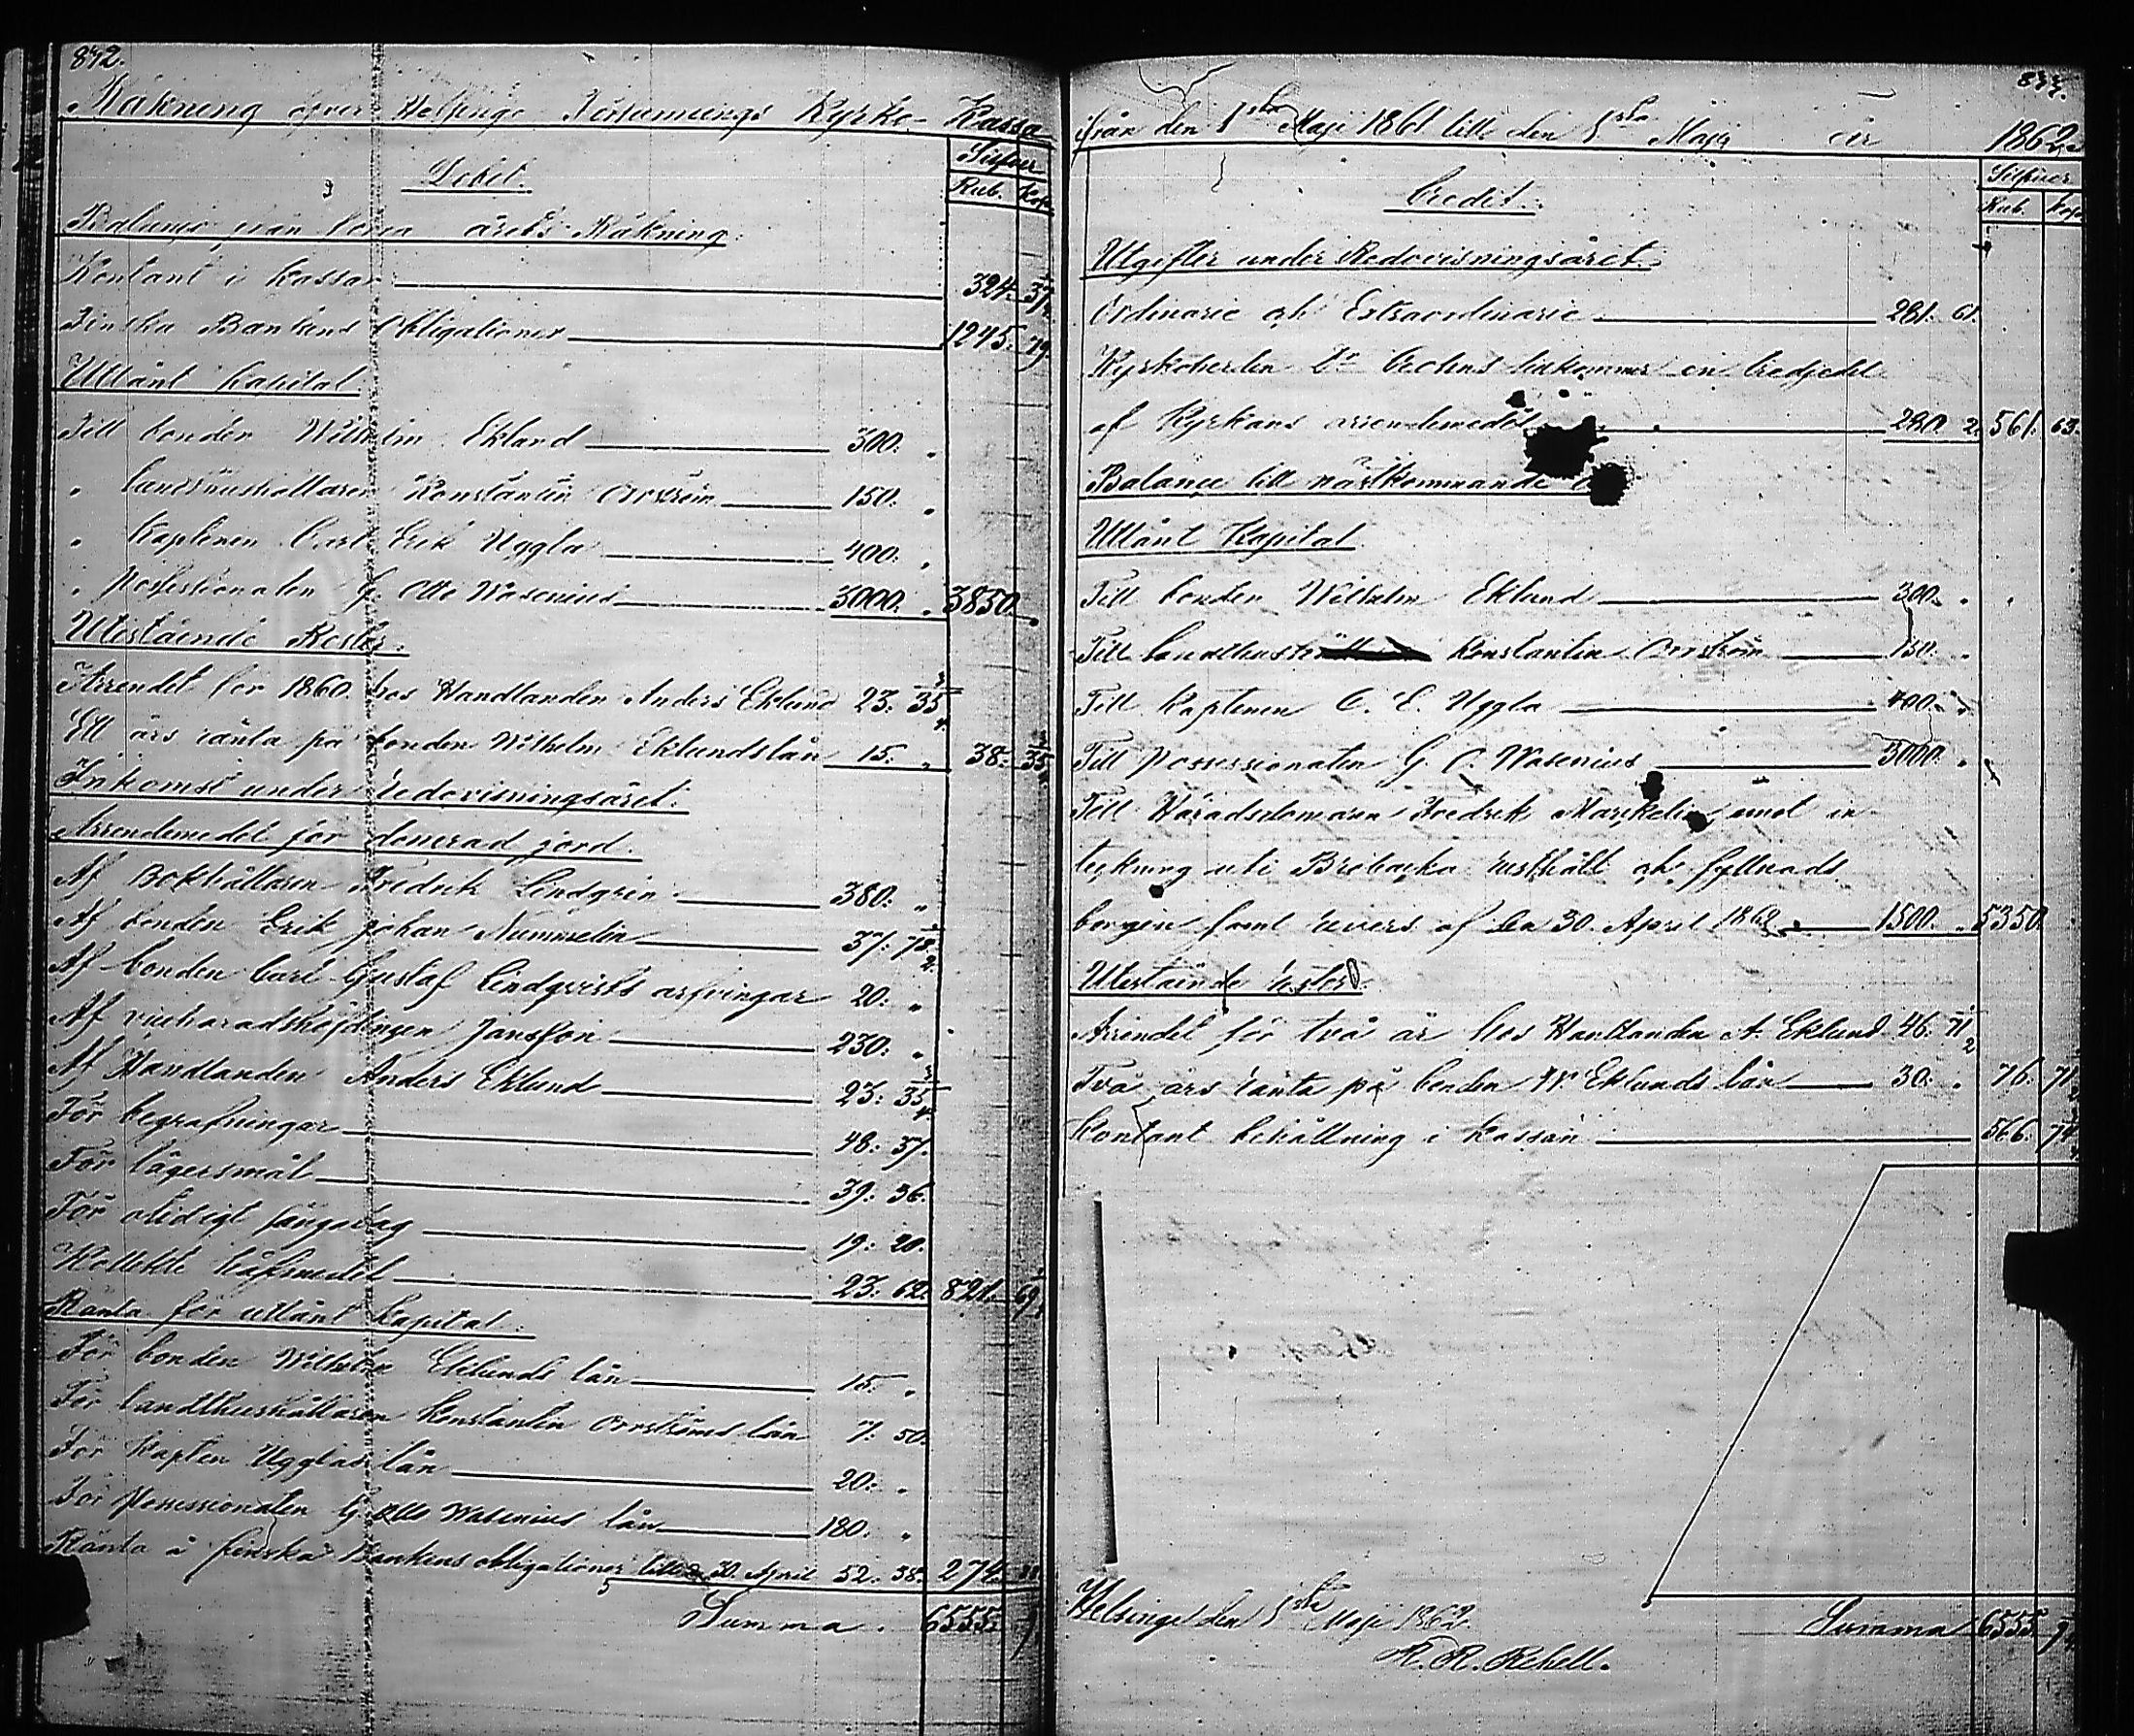 842.
Räkning öfver Helsinge Församlings Kyrko- Kassa
Silfver
Debet.
Rub. Kop.
Balance från förra årets Räkning:
Kontant i Kassan 324. 37
Finska Bankens Obligationer 1245. 79
Utlånt Kapital.
Till bonden Wilhelm Eklund 300. „
„ landthushållaren Konstantin Orrström 150. „
„ Kaptenen Carl Erik Uggla 400. „
„ possessionaten G. Otto Wasenius 3000. „ 3850. „
Utestående Rester.
Arrendet för 1860 hos Handlanden Anders Eklund 23: 35 3/4
Ett års ränta på bonden Wilhelm Eklunds lån 15. „ 38. 35
Inkomst under Redovisningsåret.
Arrendemedel för donerad jord.
Af Bokhållaren Fredrik Lindgren 380. „
Af bonden Erik Johan Nummelin 37: 78
Af bonden Carl Gustaf Lindqvists arfvingar 20: „
Af viceharadshöfdingen Jansson 230: „
Af Handlanden Anders Eklund 23: 35 3/4
För begrafningar 48: 37.
För lägersmål 39: 36.
För olidigt sängslag 19: 20.
Kollekt håfmedel 23: 62. 821. 69
Ränta för utlånt Kapital.
För bonden Wilhelm Eklunds lån 15. „
För landthushållaren Konstantin Orrströms lån 7: 50.
För Kapten Ugglas lån 20: „
För possessionaten G. Otto Wasenius lån 180. „
Ränta å finska Bankens obligationer till d. 30 April 52. 38. 274.
Summa. 6555.
från den 1sta Maji 1861 till den 1sta Maji år 1862.
Silfver
Credit.
Rub. Kop.
Utgifter under Redovisningsåret.
Ordinarie och Extraordinarie 281. 61.
Kyrkoherden tillkommer en tredjedel
af Kyrkans arrendemedel 280. 2. 561. 63.
Balance till nästkommande
Utlånt Kapital
Till bonden Wilhelm Eklund 300. „
Till Konstantin Orrström 150. „
Till Kaptenen C. E. Uggla 400. „
Till Possessionaten G. O. Wasenius 3000. „
Till Häradsdomaren Fredrik Markelin, emot in-
teckning uti Brebacka rusthåll och fyllnads
borgen samt revers af den 30 April 1862 1500. „ 5350.
Utestående rester
Arrendet för två år hos Handlanden A. Eklund 46. 71 1/2
Två års ränta på bonden W. Eklunds lån 30. „ 76. 71
Kontant behållning i Kassan 566. 74
Helsinge den 1sta Maji 1862.
Summa 6555.